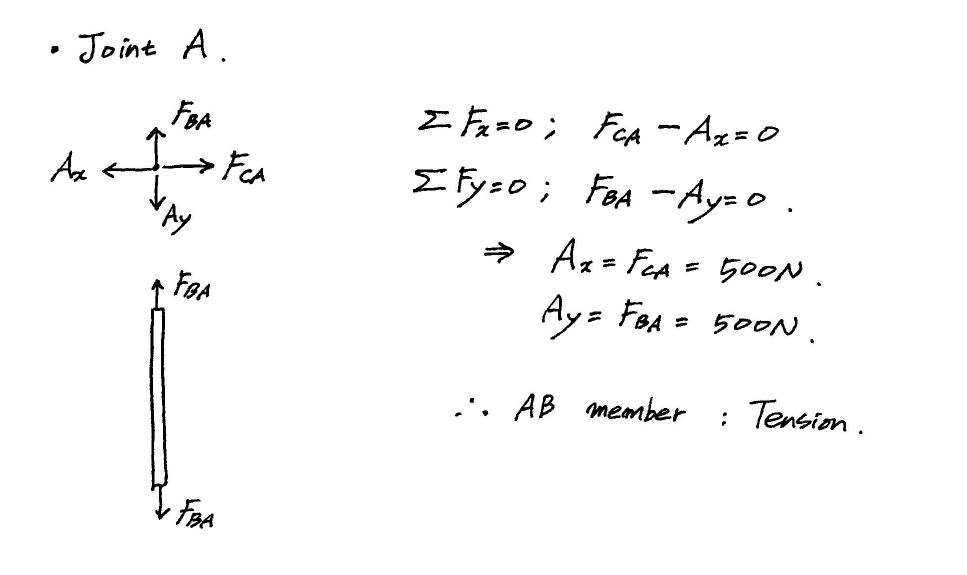 • Joint A.
F_BA
A_x F_CA
A_y
F_BA
F_BA
ΣF_x=0; F_CA - A_x = 0
ΣF_y=0; F_BA - A_y = 0.
⇒ A_x = F_CA = 500N.
A_y = F_BA = 500N.
∴ AB member : Tension.